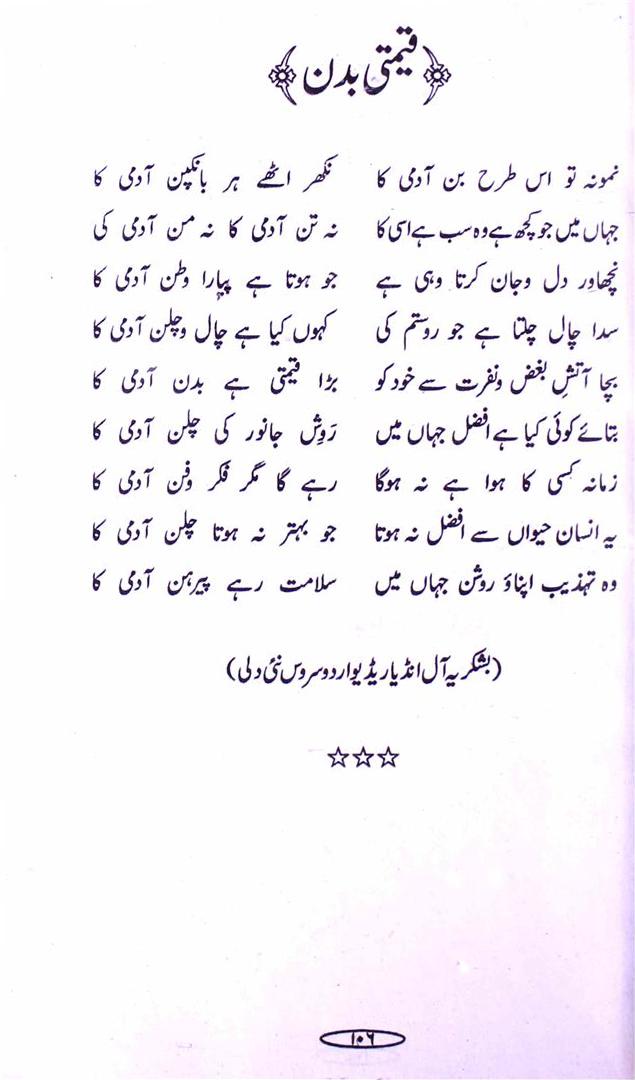 قیمتی بدن
نمونہ تو اس طرح بن آدمی کا نکھر اٹھے ہر بانکپن آدمی کا
جہاں میں جو کچھ ہے وہ سب ہے اسی کا نہ تن آدمی کا نہ من آدمی کی
نچھاور دل وجان کرتا وہی ہے جو ہوتا ہے پیارا وطن آدمی کا
سدا چال چلتا ہے جو روستم کی کہوں کیا ہے چال وچلن آدمی کا
بچا آتشِ بغض ونفرت سے خود کو بڑا قیمتی ہے بدن آدمی کا
بتائے کوئی کیا ہے افضل جہاں میں رَوِش جانور کی چلن آدمی کا
زمانہ کسی کا ہوا ہے نہ ہوگا رہے گا مگر فکر وفن آدمی کا
یہ انسان حیواں سے افضل نہ ہوتا جو بہتر نہ ہوتا چلن آدمی کا
وہ تہذیب اپناؤ روشن جہاں میں سلامت رہے پیرہن آدمی کا
(بشکریہ آل انڈیا ریڈیو اردو سروس نئی دلی)
☆☆☆
۱۰۶